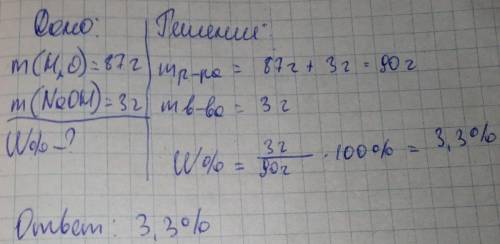 Дано:
m(H₂O)=87г
m(NaOH)=3г
W%-?
Решение:
mр-ра = 87г + 3г = 90г
mв-ва = 3г
W% = 3г/90г · 100% = 3,3%
Ответ: 3,3%